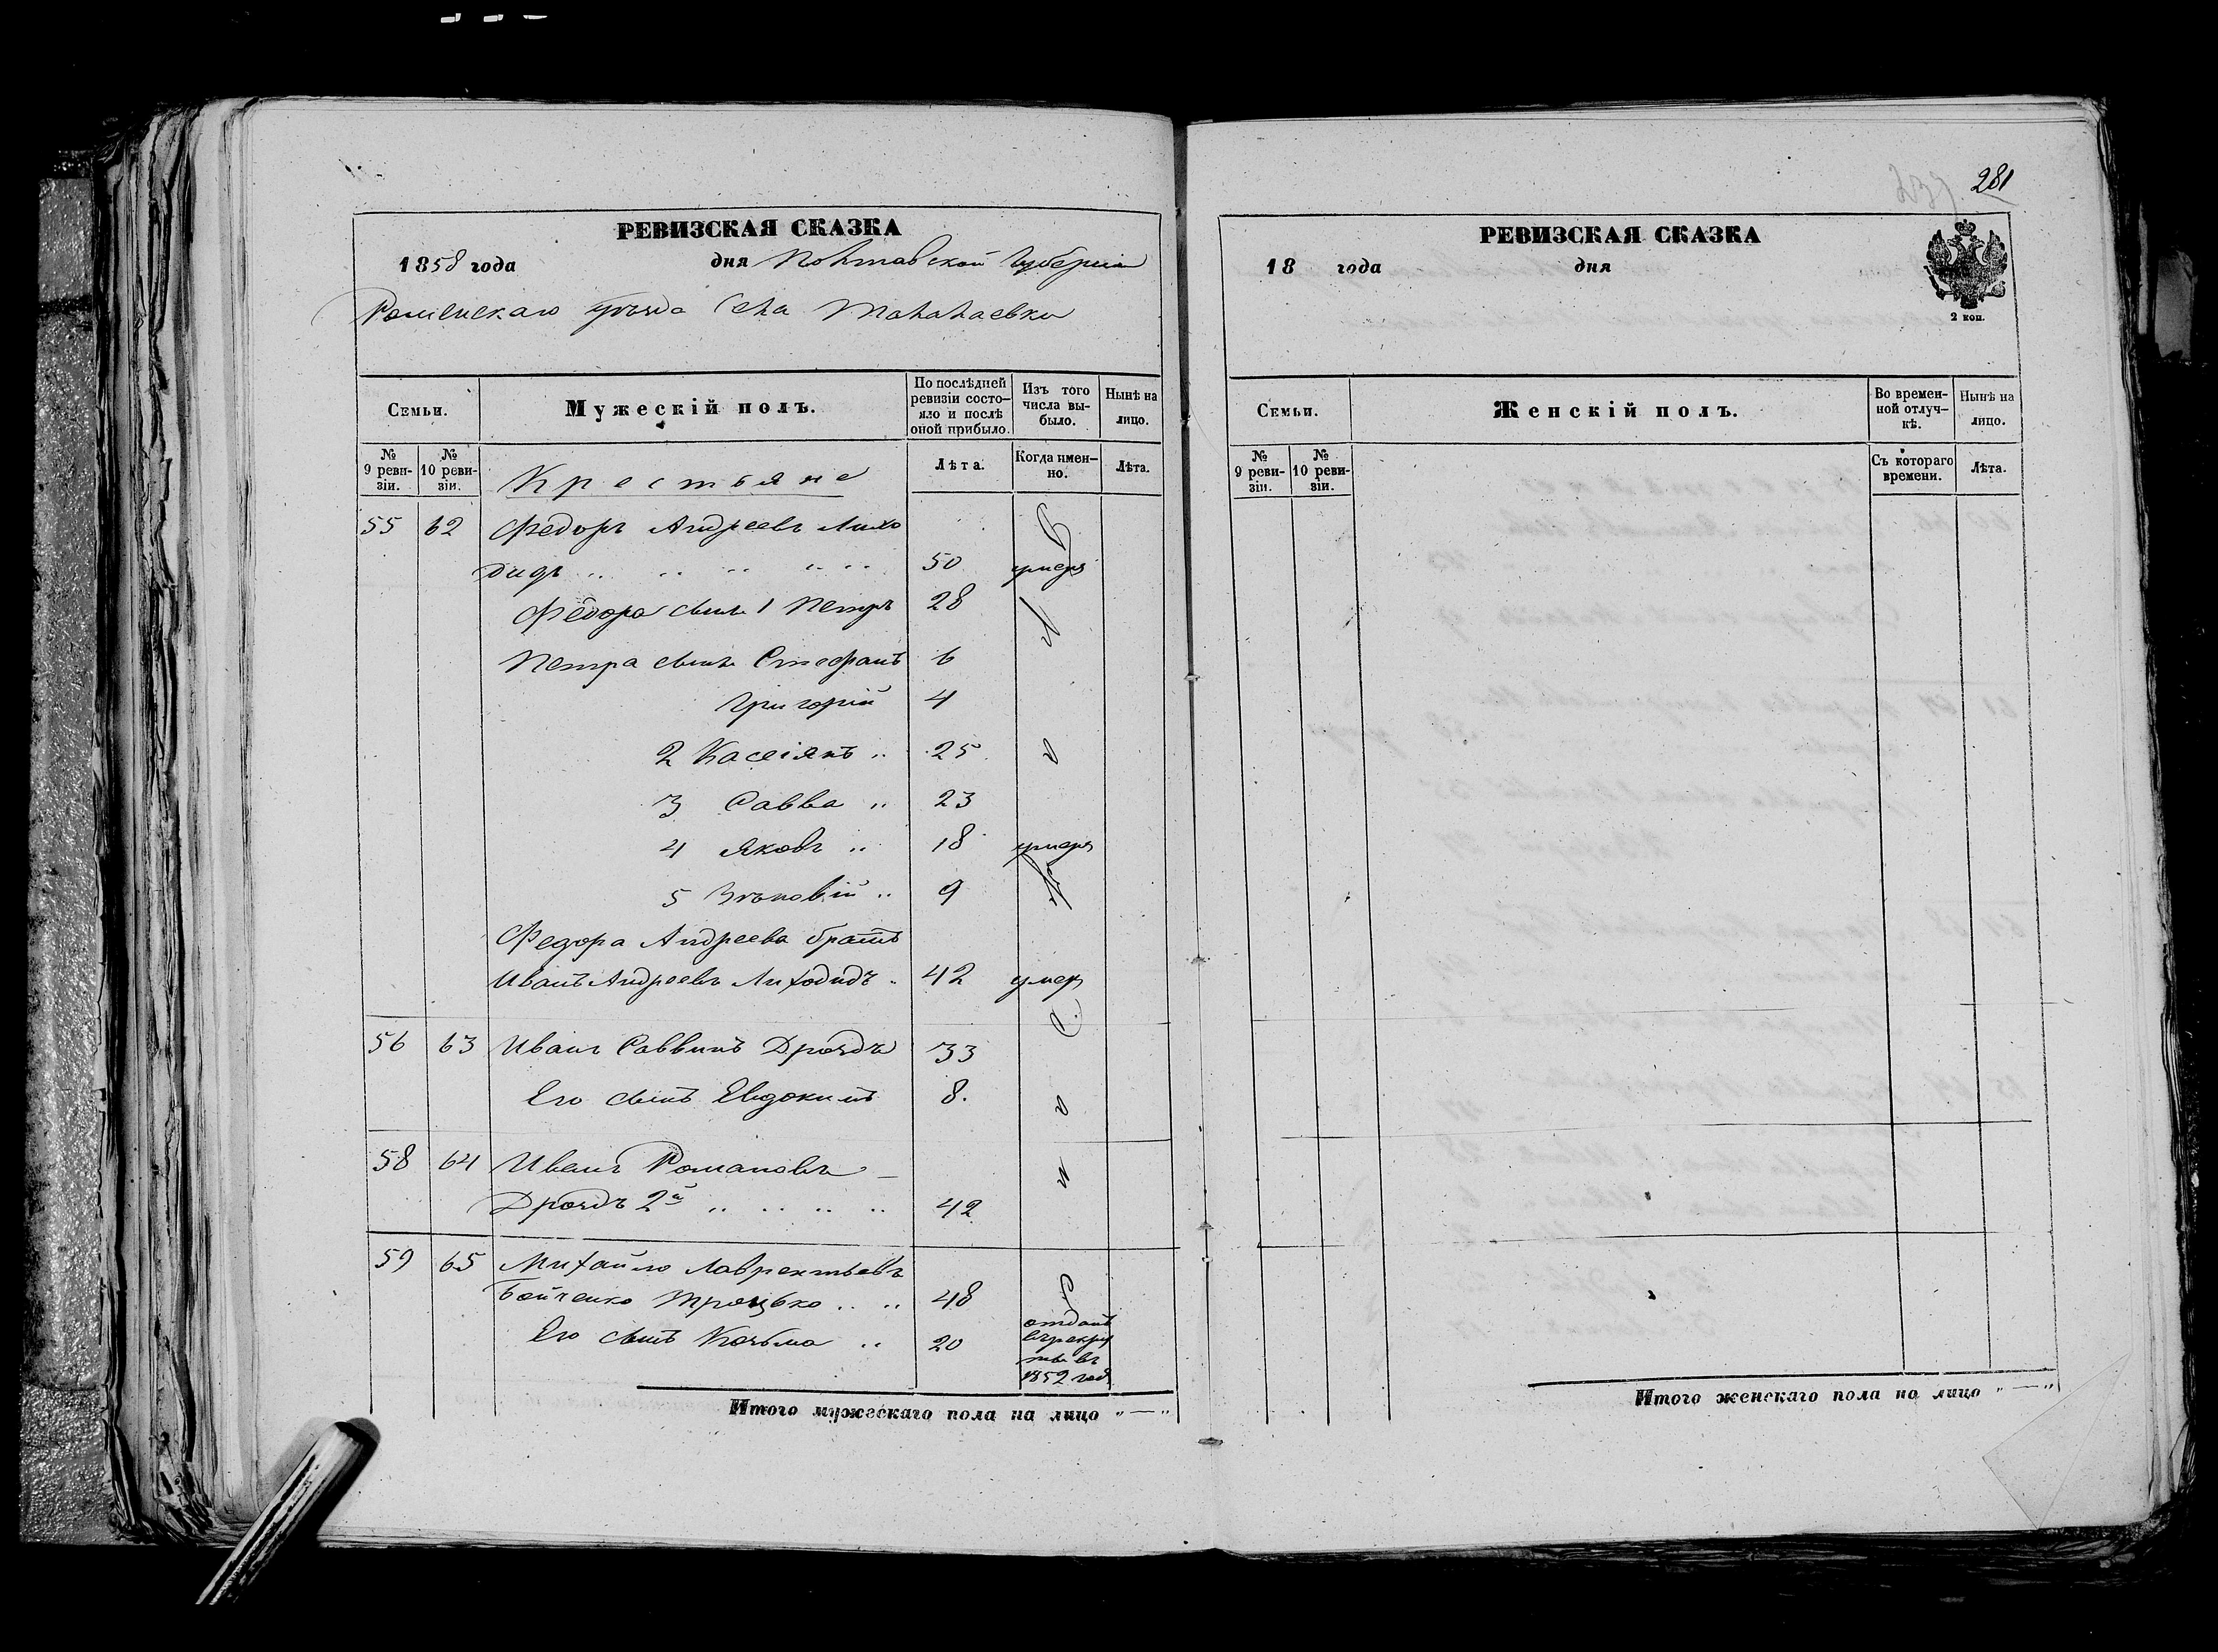 281
РЕВИЗСКАЯ СКАЗКА
1858 года дня Полтавской Губернии
Роменскаго уѣзда Села Талалаевки
Семьи. Мужескій полъ. По послѣдней ревизіи состо-яло и послѣ оной прибыло. Изъ того числа вы-было. Нынѣ на лицо.
№ 9 реви-зіи. № 10 реви-зіи. Крестьяне Лѣта. Когда имен-но. Лѣта.
55 62 Федоръ Андреевъ Лихо
дидъ .. .. .. .. .. 50 умеръ
Федора сынъ 1 Петръ 28
Петра сынъ Стефанъ 6
Григорій 4
2 Касіянъ .. 25
3 Савва .. 23
4 Яковъ .. 18 умеръ
5 Зѣновій .. 9
Федора Андреева братъ
Иванъ Андреевъ Лиходидъ . 42 умеръ
56 63 Иванъ Саввинъ Дроздъ 33
Его сынъ Евдокимъ 8.
58 64 Иванъ Романовъ —
Дроздъ 2й .. .. .. .. 42
59 65 Михайло Лаврентьевъ
Бойченко Троцько .. .. 48
Его сынъ Козьма .. 20 отданъ
въ рекру
ты въ
1852 год.
Итого мужескаго пола на лицо „—“
РЕВИЗСКАЯ СКАЗКА
18 года дня
2 коп.
Семьи. Женскій полъ. Во времен-ной отлуч-кѣ. Нынѣ на лицо.
№ 9 реви-зіи. № 10 реви-зіи. Съ котораго времени. Лѣта.
Итого женскаго пола на лицо „—“